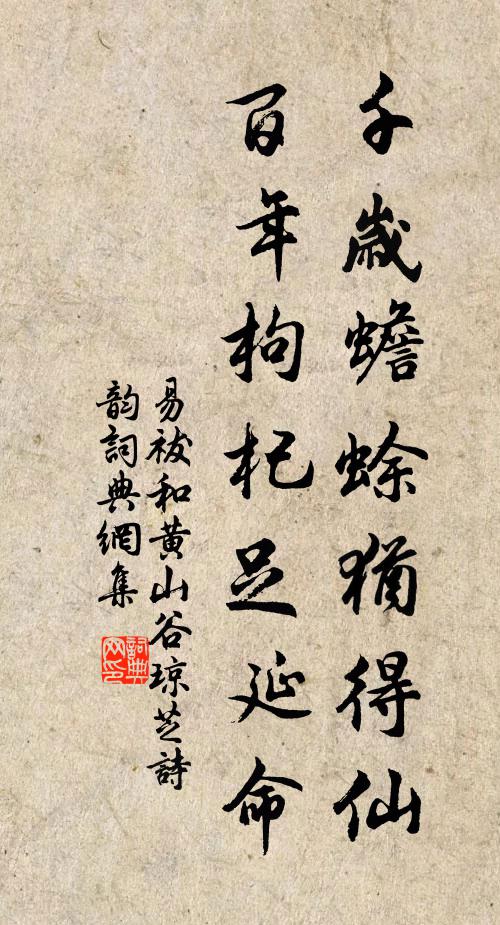 千歲蟾蜍猶得仙
百年枸杞足延命
易祓和黃山谷琼芝詩
韵詞典網集
詞典
网印